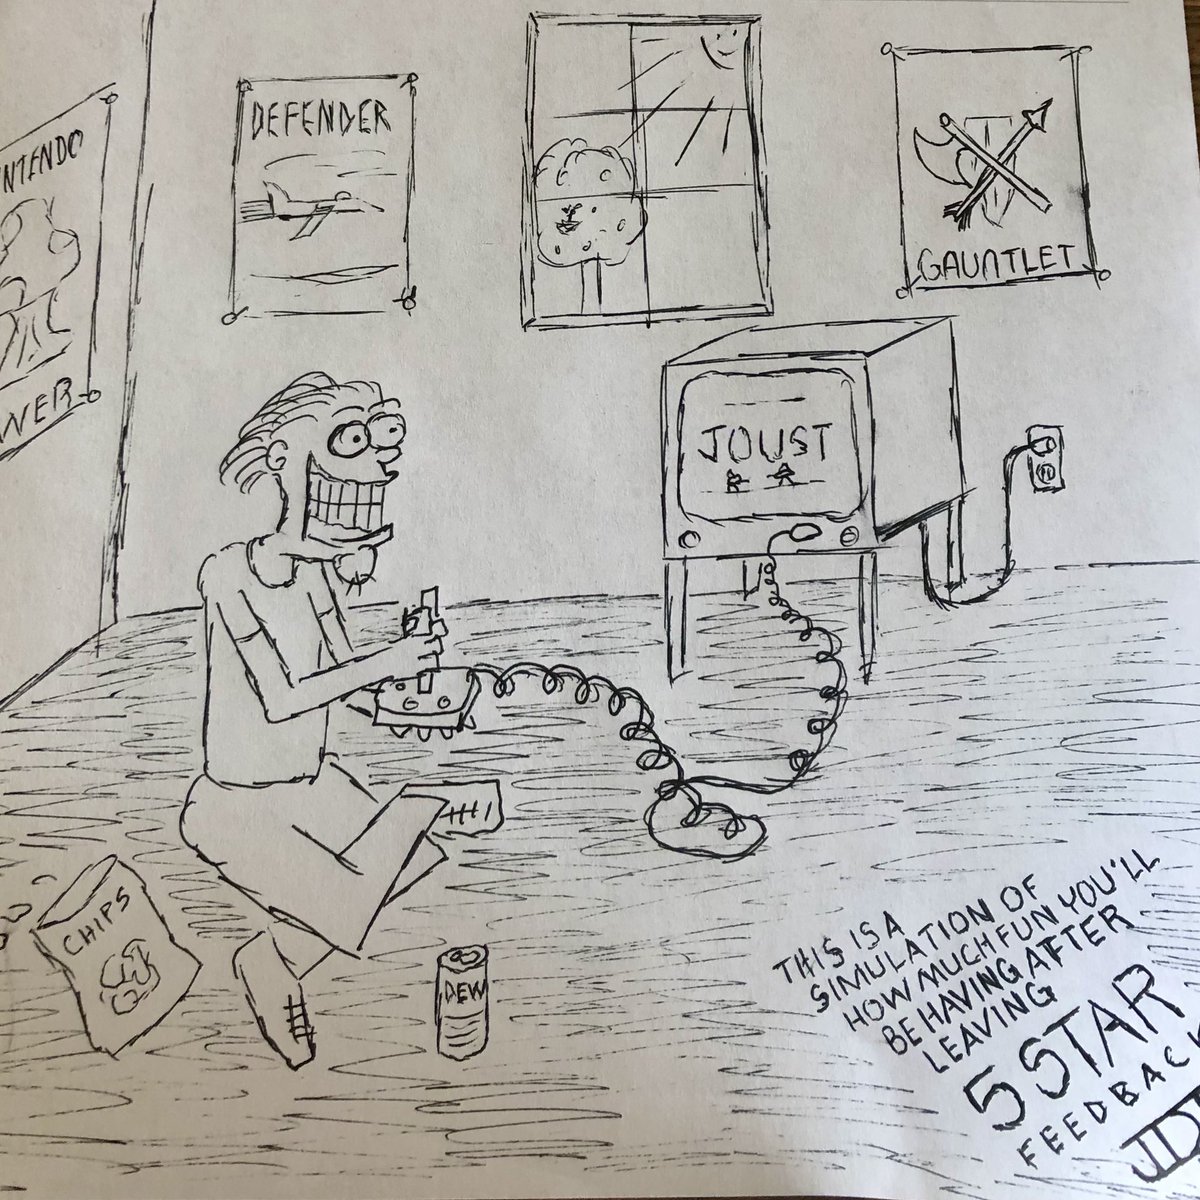 INTENDO
WER
DEFENDER
GAUNTLET
JOUST
CHIPS
DEW
THIS IS A
SIMULATION OF
HOW MUCH FUN YOU'LL
BE HAVING AFTER
LEAVING
5 STAR
FEEDBACK